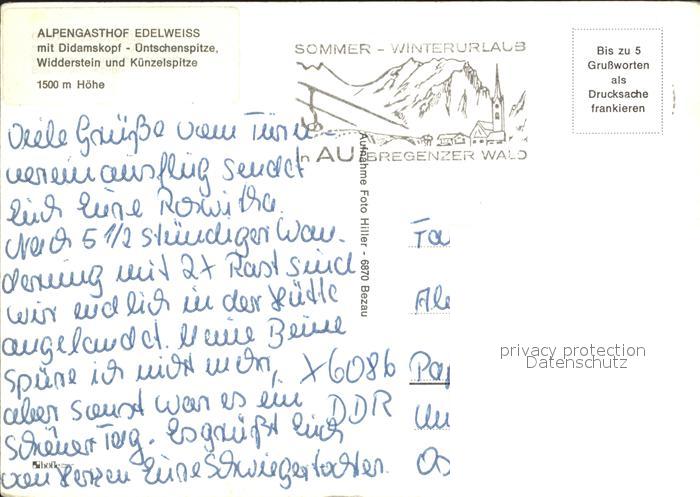 ALPENGASTHOF EDELWEISS
mit Didamskopf - Üntschenspitze,
Widderstein und Künzelspitze
1500 m Höhe
SOMMER - WINTERURLAUB
in AU BREGENZER WALD
Bis zu 5
Grußworten
als
Drucksache
frankieren
Aufnahme Foto Hiller - 6870 Bezau
Viele Grüße vom Turn-
vereinausflug sendet
Euch Eure Roswitha.
Nach 5 1/2 stündiger Wan-
derung mit 2x Rast sind
wir endlich in der Hütte
angelandet. Meine Beine
spüre ich nicht mehr,
aber sonst war es ein
schöner Tag. Es grüßt Euch
von Herzen Eure Schwiegertochter.
X6086
DDR
Fa
Ale
Pap
Un
Os
privacy protection
Datenschutz